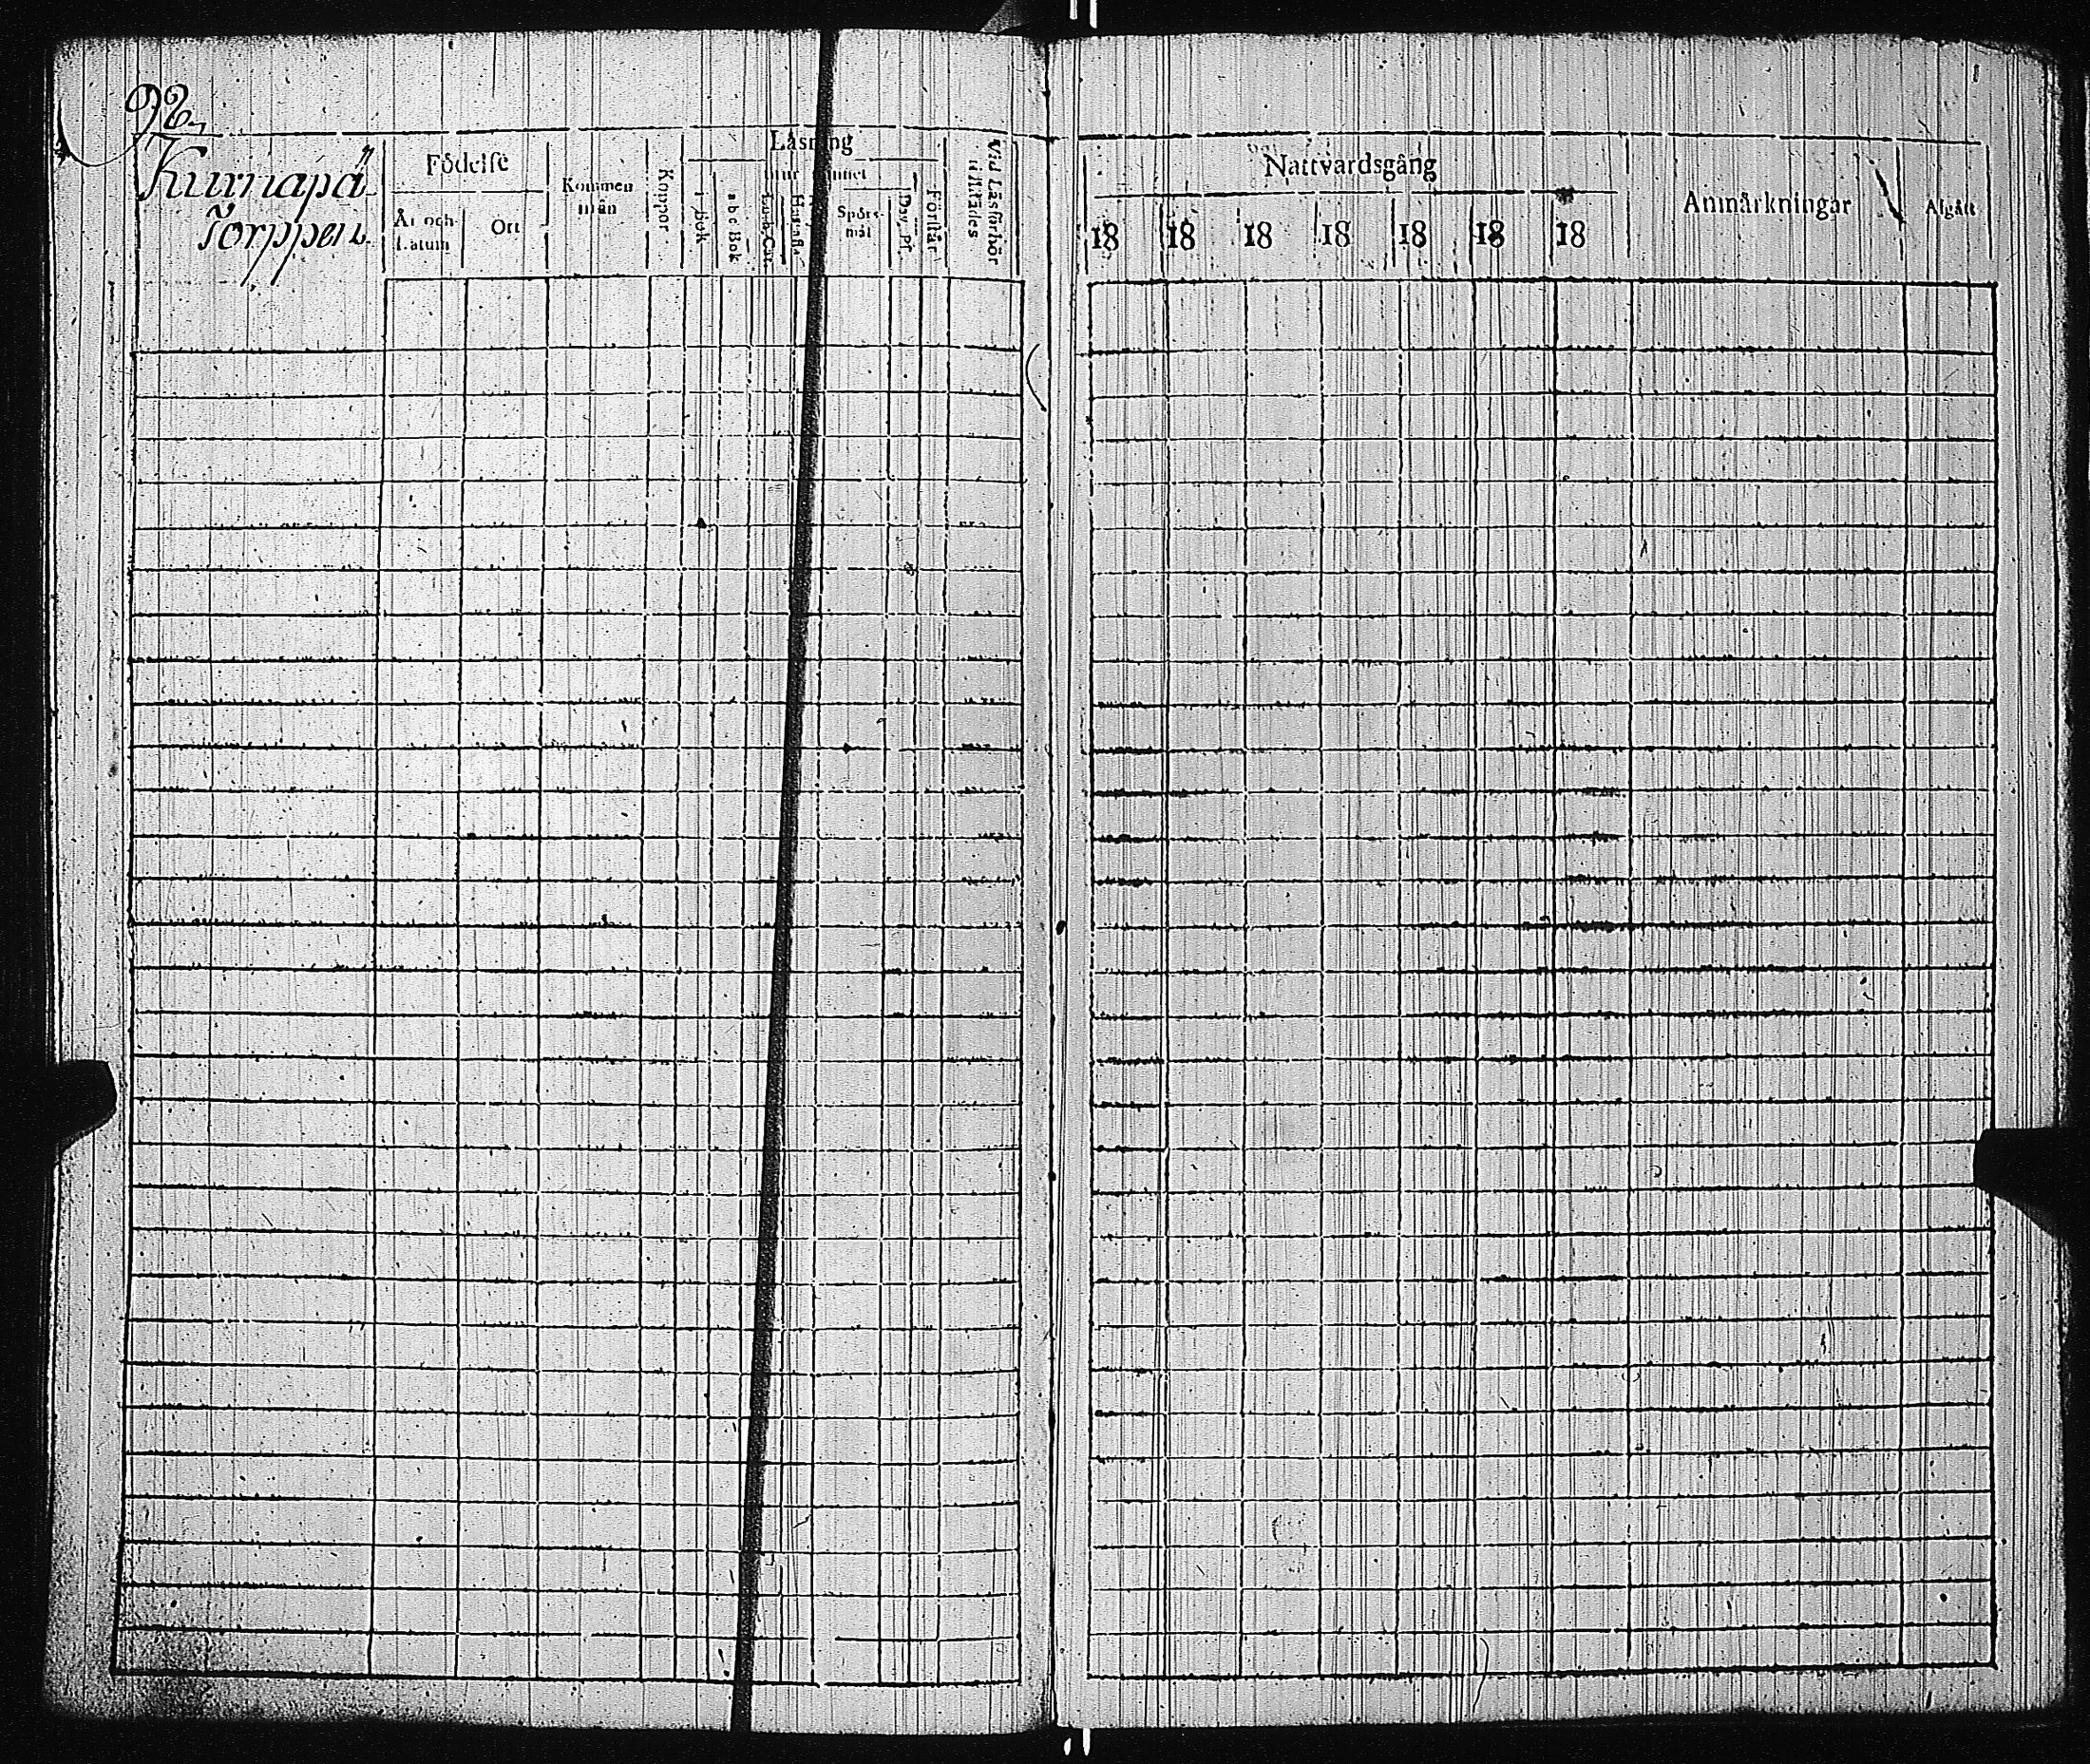 92,
Kurnapä
Torppen
Födelse
År och
Datum
Ort
Kommen
ifrån
Koppor
Läsning
i bok
a b c Bok
Spörs-
mål
Dav. Ps.
Förstår
Vid Läsförhör
tillstädes
Nattvardsgång
18 18 18 18 18 18 18
Anmärkningar
Afgått